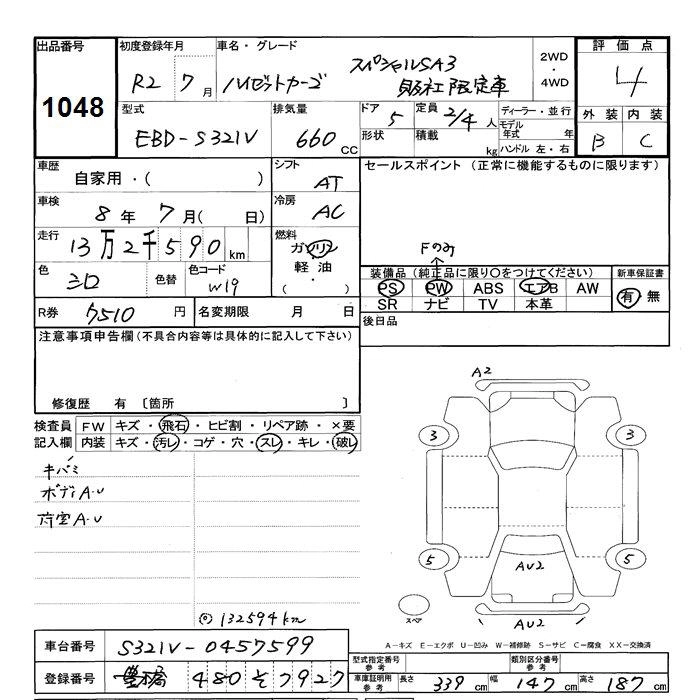 出品番号 初度登録年月 車名・グレード 評価点
1048 R2 7月 ハイゼットカーゴ スペシャルSA3 販社限定車 2WD・4WD 4
型式 排気量 ドア 5 定員 2/4人 ディーラー・並行 外装 内装
EBD-S321V 660CC 形状 積載 kg モデル年式 年 ハンドル 左・右 B C
車歴 シフト セールスポイント(正常に機能するものに限ります)
自家用・( ) AT
車検 冷房
8年 7月( 日) AC
走行 燃料 Fのみ
13万2千590km ガソリン
軽油
・( )
色 色替 色コード 装備品(純正品に限り○をつけてください) 新車保証書
シロ W19 PS PW ABS エアB AW 有・無
SR ナビ TV 本革
R券 7510円 名変期限 月 日 後日品
注意事項申告欄(不具合内容等は具体的に記入して下さい)
修復歴 有 〔箇所 〕
検査員 FW キズ・飛石・ヒビ割・リペア跡・×要
記入欄 内装 キズ・汚レ・コゲ・穴・スレ・キレ・破レ
キバミ
ボディA・U
荷室A・U
◎132594km
A2
3 3
5 5
AU2
AU2
スペア
A-キズ E-エクボ U-凹み W-補修跡 S-サビ C-腐食 XX-交換済
車台番号 S321V-0457599 型式指定番号 参考 類別区分番号 参考
登録番号 豊橋 480 そ 7927 車庫証明用 参考 長さ 339cm 幅 147cm 高さ 187cm